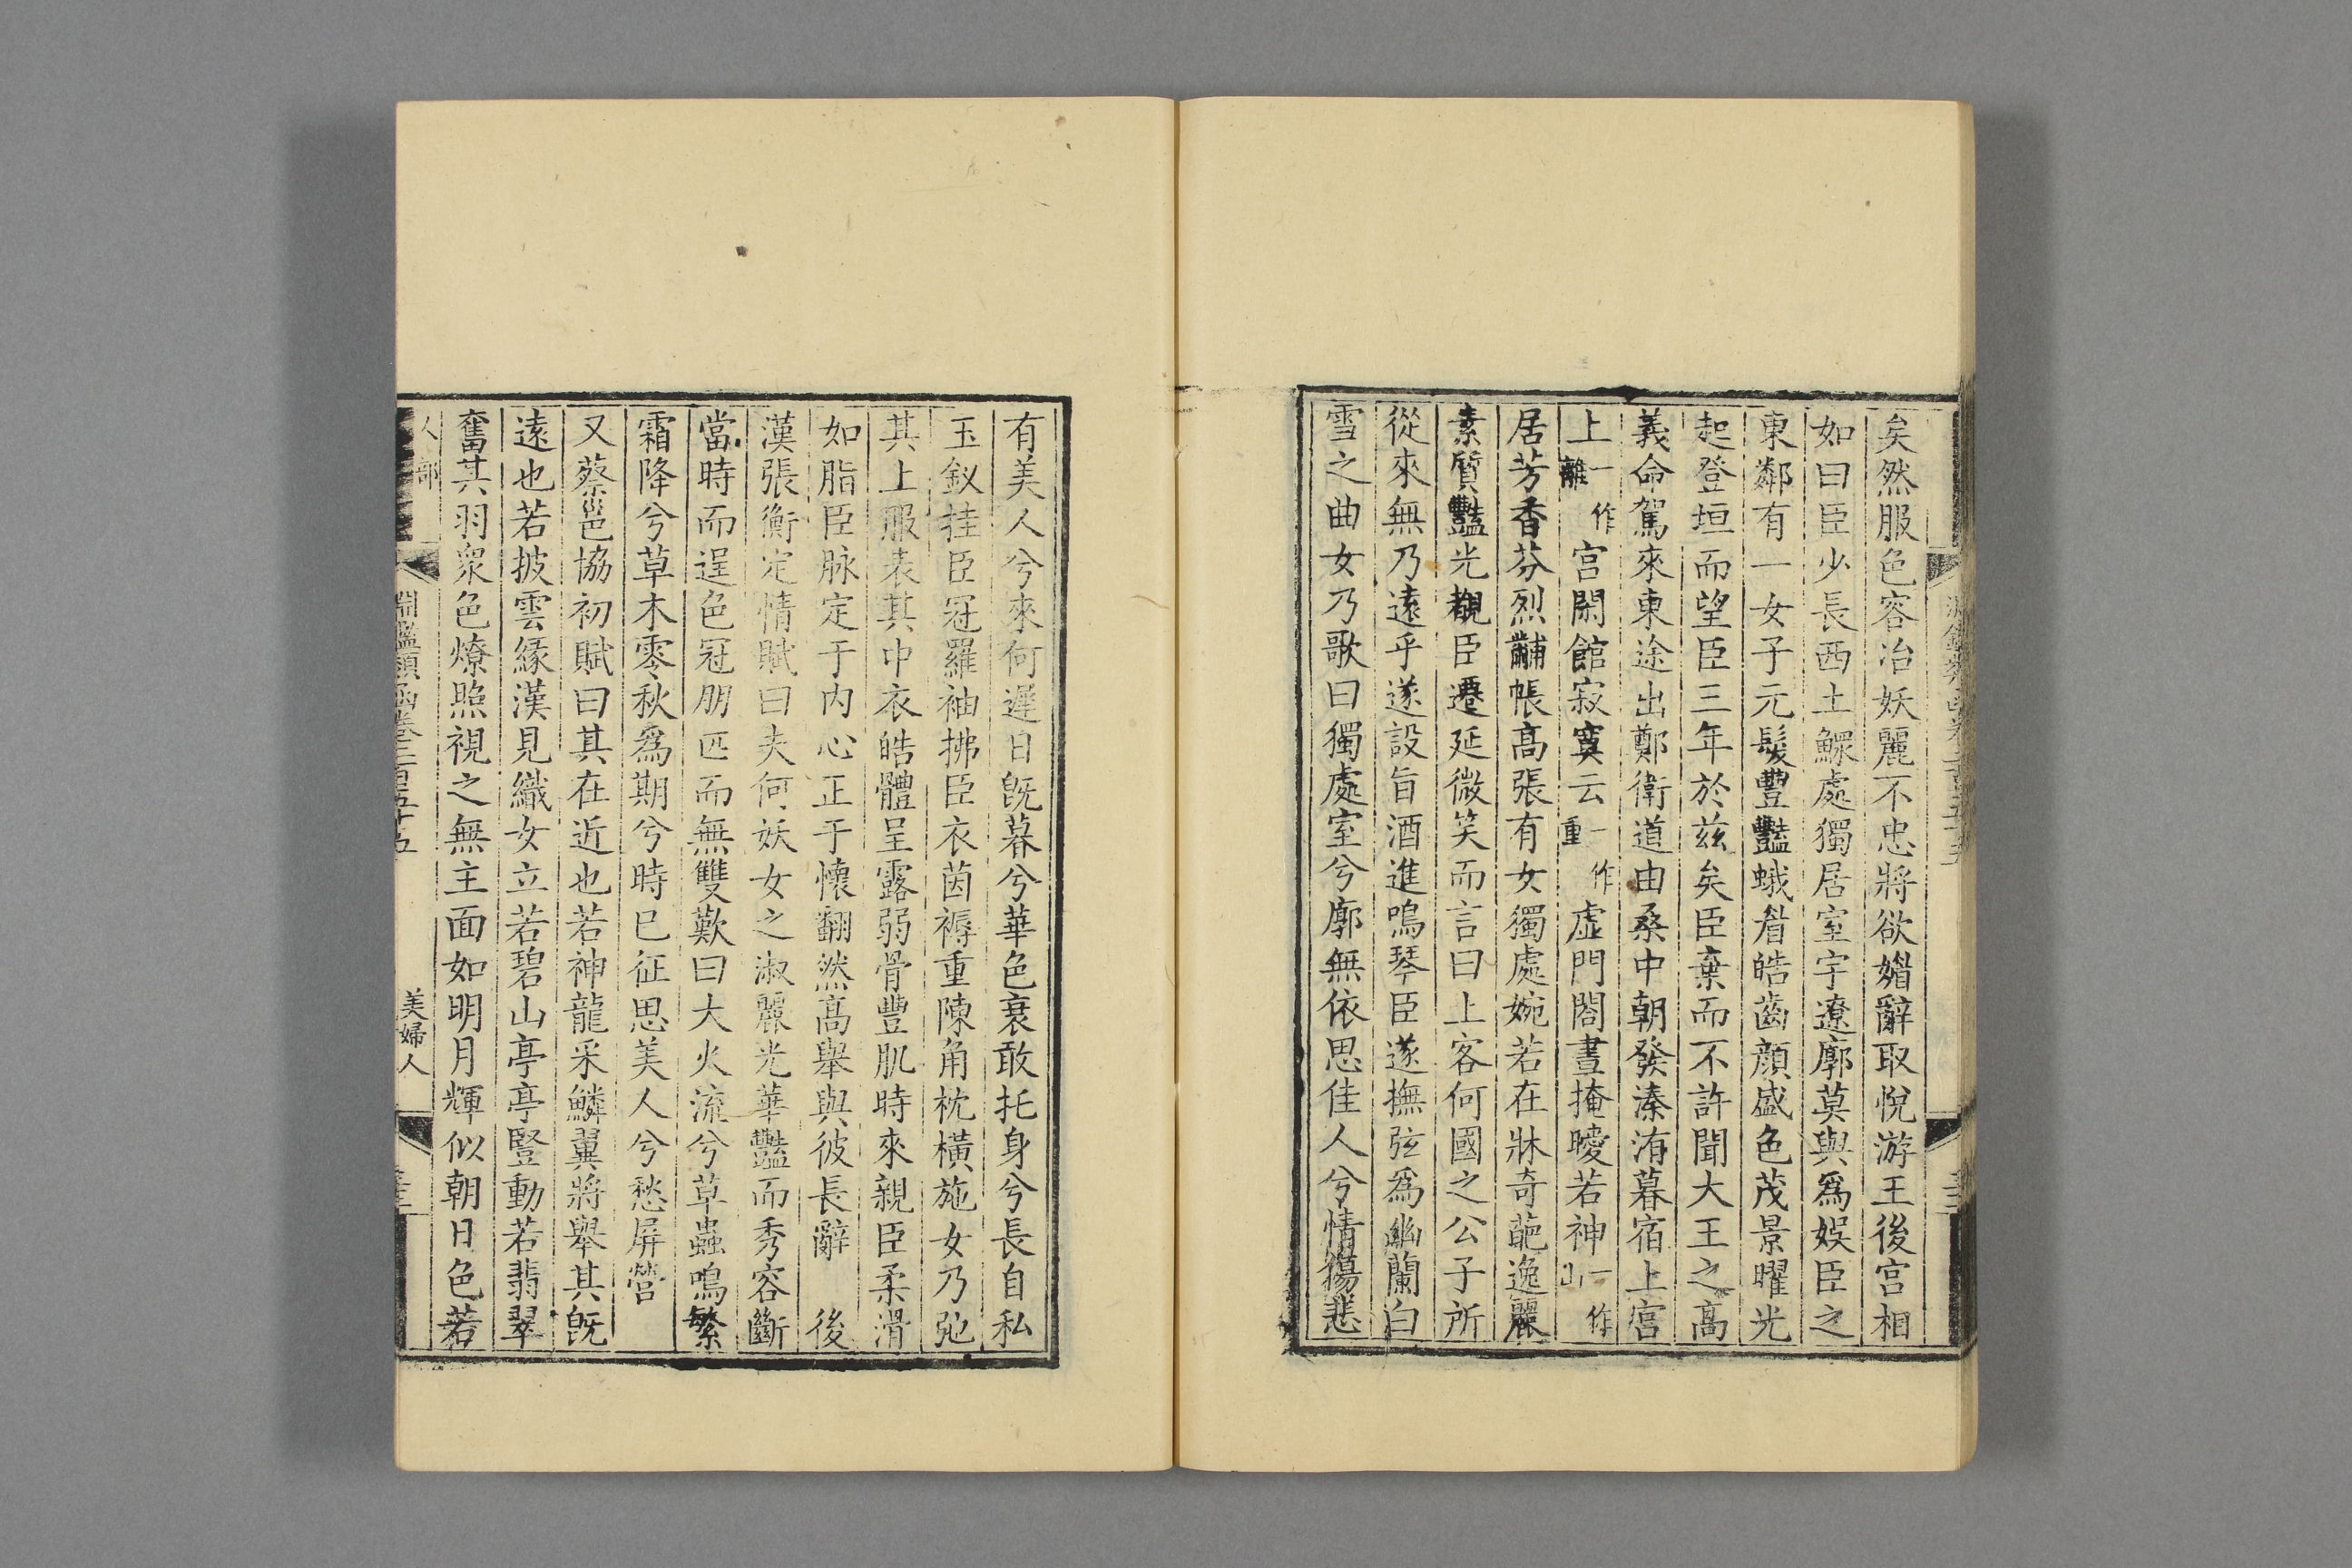 矣然服色容冶妖麗不忠將欲媚辭取悅游王後宮相
如曰臣少長西土鰥處獨居室宇遼廓莫與爲娛臣之
東鄰有一女子元髮豐豔蛾眉皓齒顔盛色茂景曜光
起登垣而望臣三年於茲矣臣棄而不許聞大王之高
義命駕來東途出鄭衛道由桑中朝發溱洧暮宿上宮
上一作離宮閑館寂寞云一作重虛門閤晝掩曖若神一作仙
居芳香芬烈黼帳高張有女獨處婉若在牀奇葩逸麗
素質豔光覩臣遷延微笑而言曰上客何國之公子所
從來無乃遠乎遂設旨酒進鳴琴臣遂撫弦爲幽蘭白
雪之曲女乃歌曰獨處室兮廓無依思佳人兮情傷悲
有美人兮來何遲日旣暮兮華色衰敢托身兮長自私
玉釵挂臣冠羅袖拂臣衣茵褥重陳角枕橫施女乃弛
其上服表其中衣皓體呈露弱骨豐肌時來親臣柔滑
如脂臣脉定于内心正于懷翻然高舉與彼長辭 後
漢張衡定情賦曰夫何妖女之淑麗光華豔而秀容斷
當時而逞色冠朋匹而無雙歎曰大火流兮草蟲鳴繁
霜降兮草木零秋爲期兮時巳征思美人兮愁屏營
又蔡邕協初賦曰其在近也若神龍采鱗翼將舉其旣
遠也若披雲緣漢見織女立若碧山亭亭豎動若翡翠
奮其羽衆色燎照視之無主面如明月輝似朝日色若
人部 淵鑑類函卷二百五十五 美婦人